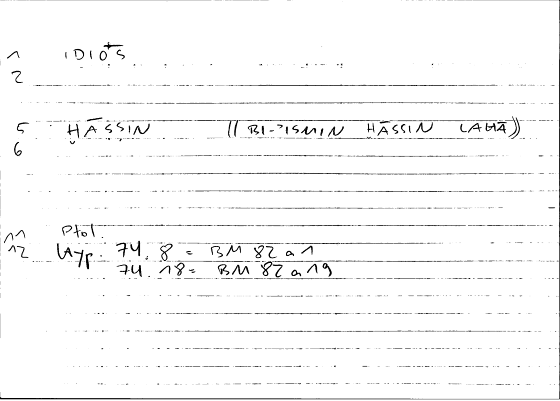 1 IDIŌS
2
5 ḤĀṢṢIN ((BI-ʔISMIN ḤĀṢṢIN LAHĀ))
6
11 Ptol.
12 Hyp. 74.8 = BM 82a1
74.18 = BM 82a19